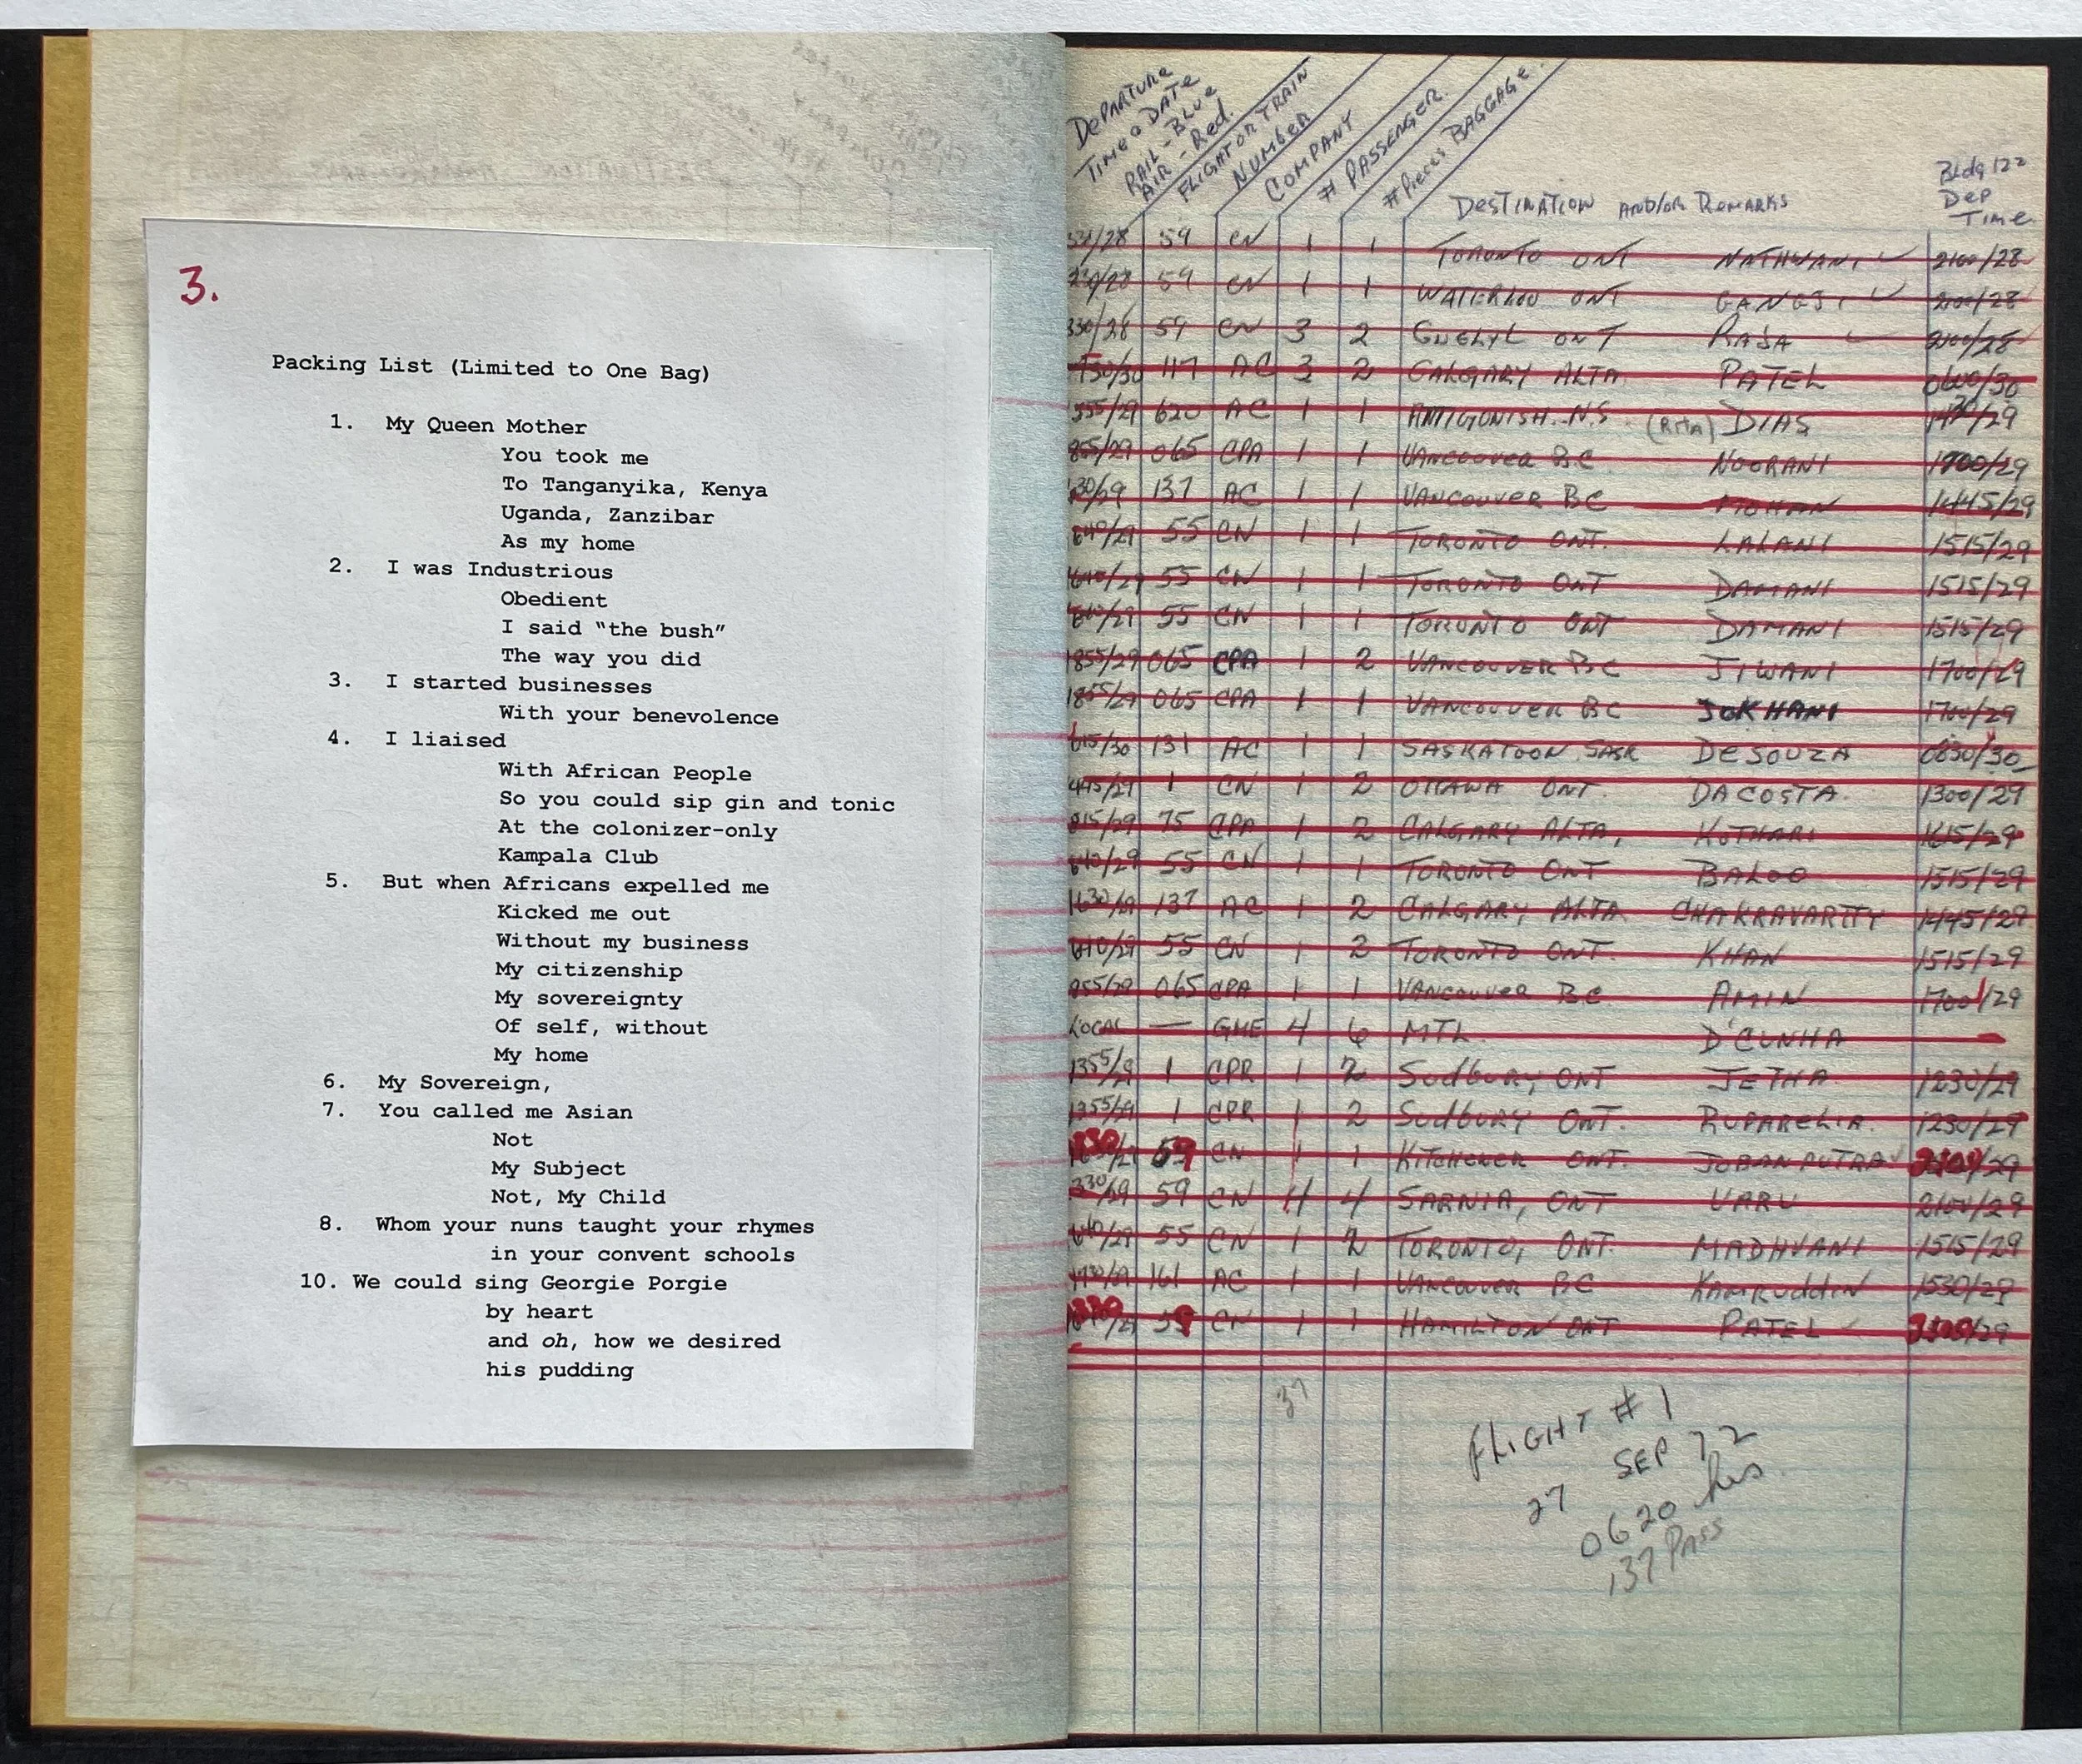 3.
Packing List (Limited to One Bag)
1. My Queen Mother
You took me
To Tanganyika, Kenya
Uganda, Zanzibar
As my home
2. I was Industrious
Obedient
I said “the bush”
The way you did
3. I started businesses
With your benevolence
4. I liaised
With African People
So you could sip gin and tonic
At the colonizer-only
Kampala Club
5. But when Africans expelled me
Kicked me out
Without my business
My citizenship
My sovereignty
Of self, without
My home
6. My Sovereign,
7. You called me Asian
Not
My Subject
Not, My Child
8. Whom your nuns taught your rhymes
in your convent schools
10. We could sing Georgie Porgie
by heart
and oh, how we desired
his pudding
DEPARTURE
TIME & DATE
RAIL - BLUE
AIR - Red.
FLIGHT OR TRAIN
NUMBER
COMPANY
# PASSENGER.
# Pieces BAGGAGE.
DESTINATION AND/OR REMARKS
Bldg 122
Dep
Time.
59 CN 1 1 TORONTO ONT NATHWANI 2100/28
59 CN 1 1 WATERLOO ONT GANGJI 2100/28
330/28 59 CN 3 2 ONT RAJA 2100/28
117 AC 3 2 CALGARY ALTA PATEL 0600/30
620 AC 1 1 ANTIGONISH. N.S (RITA) DIAS
855/29 065 CPA 1 1 VANCOUVER BC NOORANI 1700/29
137 AC 1 1 VANCOUVER BC MOHAN 1445/29
55 CN 1 1 TORONTO ONT. LALANI 1515/29
55 CN 1 1 TORONTO ONT DAMANI 1515/29
55 CN 1 1 TORONTO ONT DAMANI 1515/29
1855/29 065 CPA 1 2 VANCOUVER BC JIWANI 1700/29
1855/29 065 CPA 1 1 VANCOUVER BC JOKHANI 1700/29
131 AC 1 1 SASKATOON SASK DESOUZA 0830/30
1 CN 1 2 OTTAWA ONT. DACOSTA. 1300/29
75 CPA 1 2 CALGARY ALTA, KOTHARI 1615/29
55 CN 1 1 TORONTO ONT BALOO 1515/29
137 AC 1 2 CALGARY, ALTA CHAKRAVARTTY 1445/29
55 CN 1 2 TORONTO ONT. KHAN 1515/29
065 CPA 1 1 VANCOUVER BC AMIN 1700/29
LOCAL — 4 6 MTL D'CUNHA —
1355/29 1 CPR 1 2 Sudbury, ONT JETHA 1230/29
1355/29 1 CPR 1 2 Sudbury ONT. RUPARELIA. 1230/29
59 CN 1 1 KITCHENER ONT. JOBANPUTRA
59 CN 4 4 SARNIA, ONT VARU 2100/29
55 CN 1 2 TORONTO, ONT. MADHVANI 1515/29
161 AC 1 1 VANCOUVER BC KAMRUDDIN 1530/29
59 CN 1 1 HAMILTON ONT PATEL
37
FLIGHT #1
27 SEP 72
0620 hrs.
137 PASS